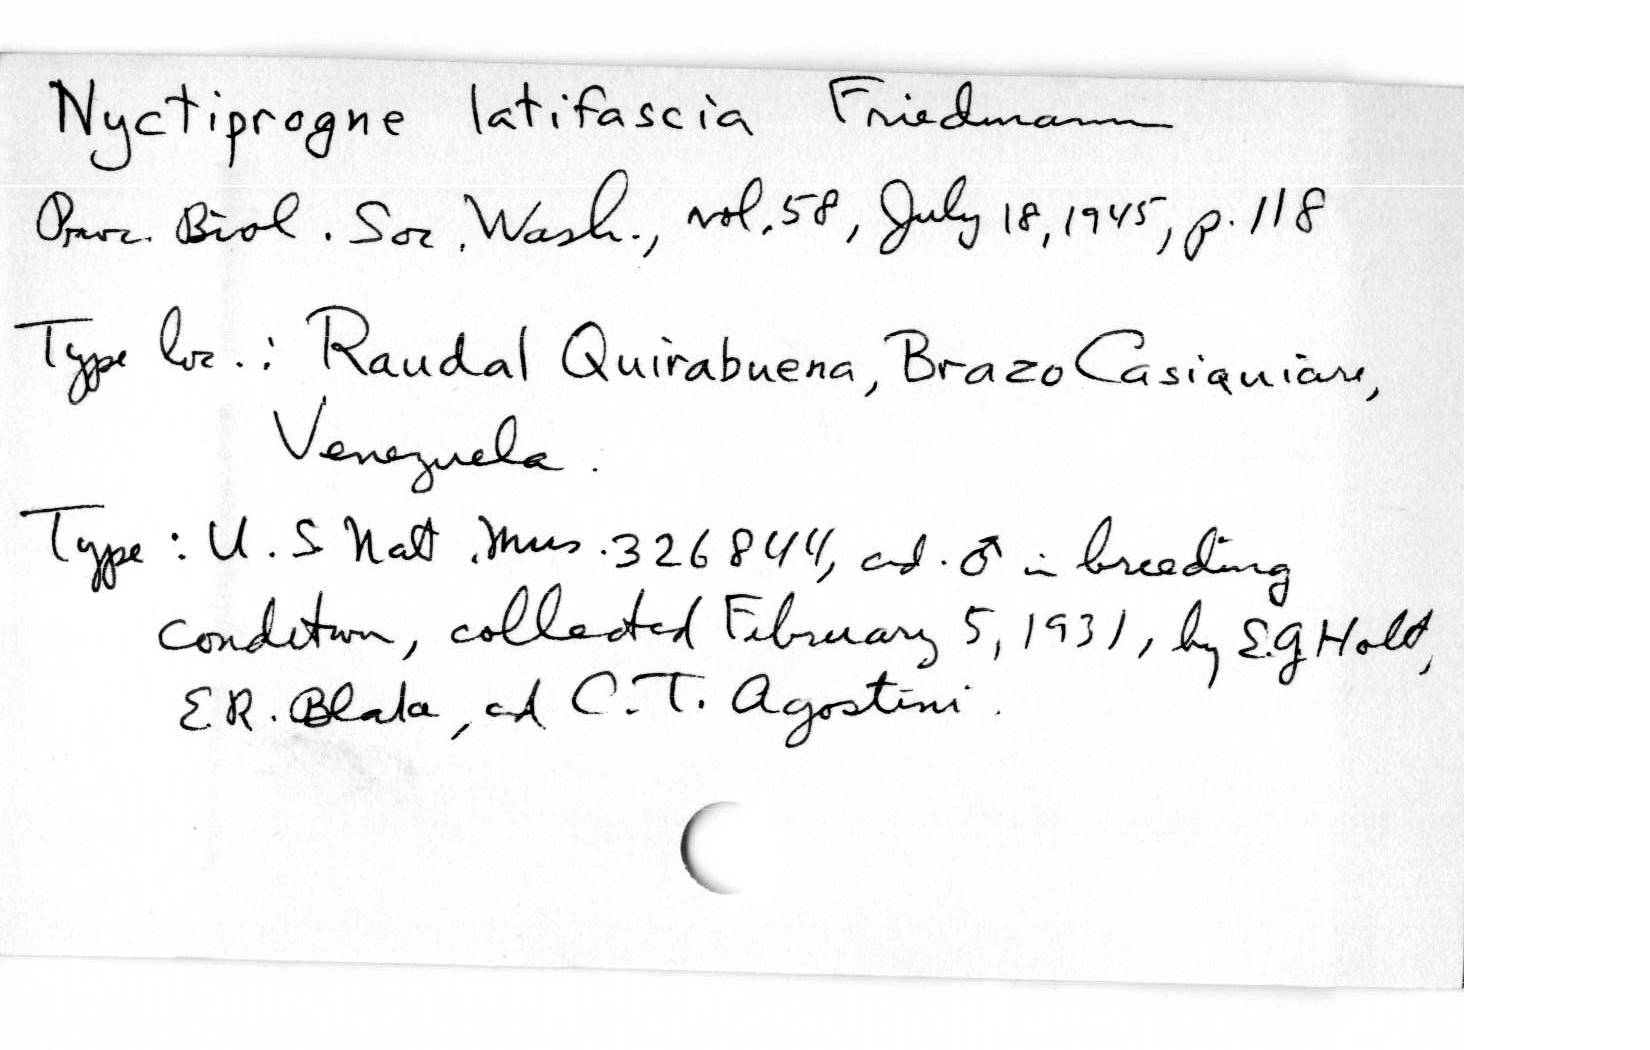 Nyctiprogne latifascia Friedmann
Proc. Biol. Soc. Wash., vol. 58, July 18, 1945, p. 118
Type loc.: Raudal Quirabuena, Brazo Casiquiare,
Venezuela.
Type: U.S Nat. Mus. 326844, ad. ♂ in breeding
condition, collected February 5, 1931, by E.G. Holt,
E.R. Blake, and C.T. Agostini.